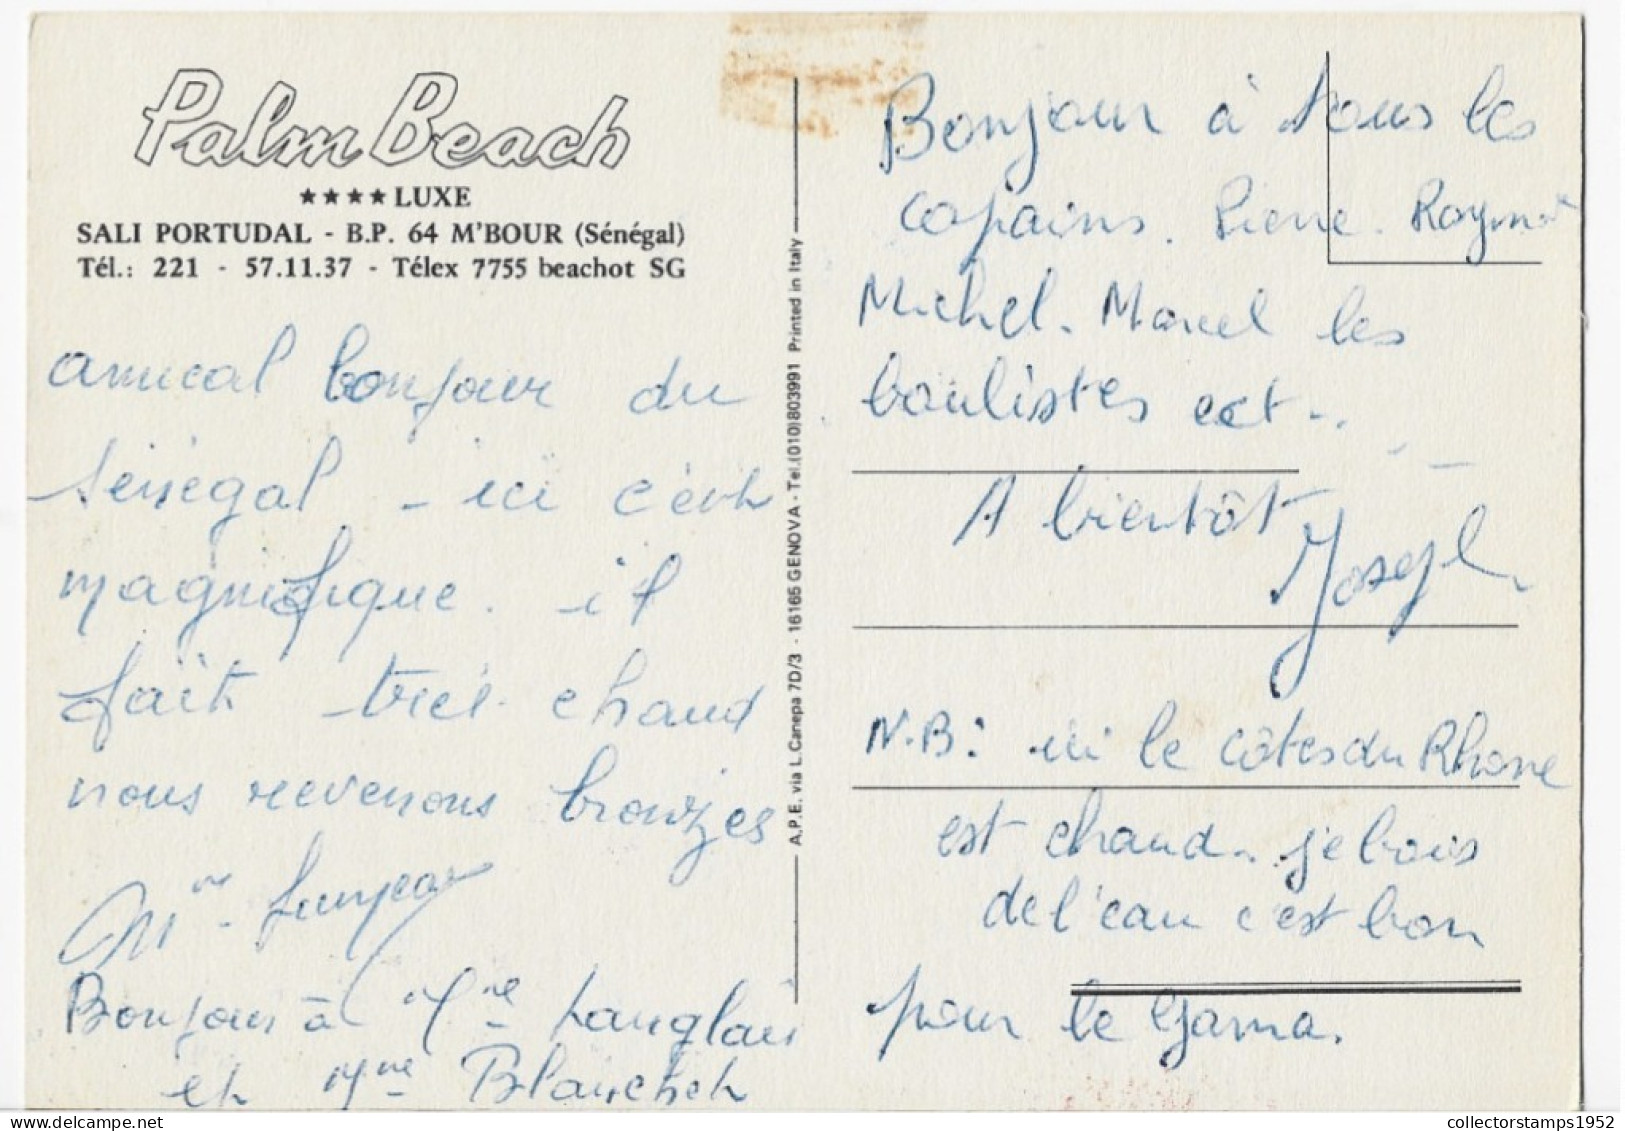 Palm Beach
★★★★ LUXE
SALI PORTUDAL - B.P. 64 M'BOUR (Sénégal)
Tél.: 221 - 57.11.37 - Télex 7755 beachot SG
amical bonjour du
Sénégal - ici c'est
magnifique. il
fait très chaud
nous revenons bronzés
Mme
Bonjour à Mme Langlais
et Mme Blanchet
A.P.E. via L. Canepa 7D/3 - 16165 GENOVA - Tel. (010) 803991 Printed in Italy
Bonjour à tous les
copains. Pierre. Raymond
Michel. Marcel les
boulistes ect...
A bientôt
Joseph
N.B: ici le côtes du Rhone
est chaud. je bois
de l'eau c'est bon
pour le Gama.
collectorstamps1952